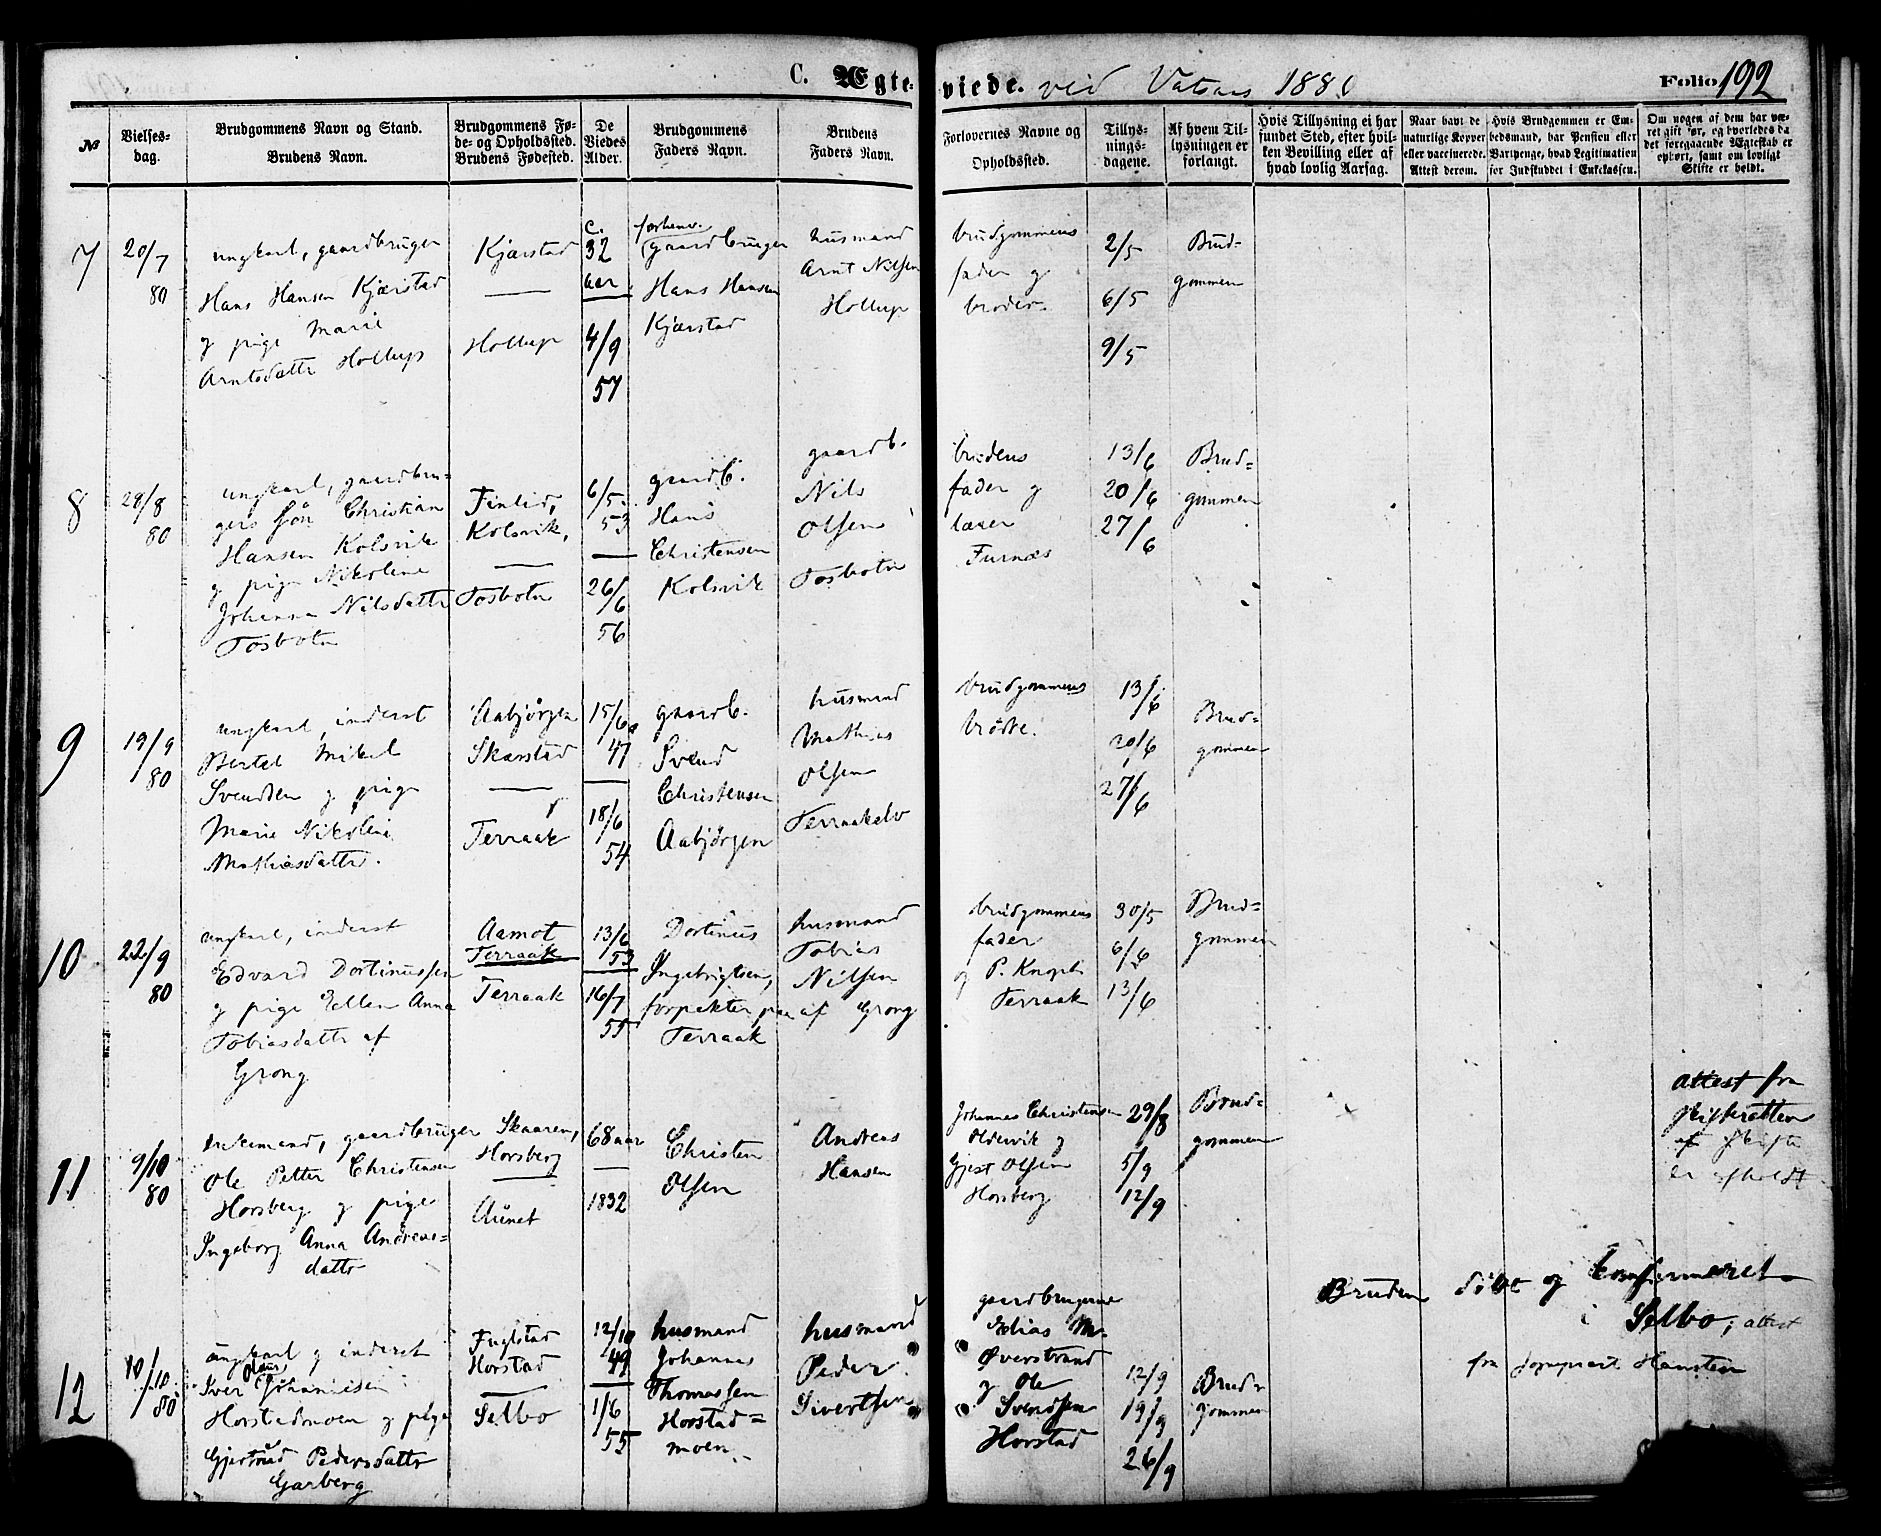 C. Ægteviede. ved Vatsaas 1880
Folio 192
№
Vielses-
dag.
Brudgommens Navn og Stand.
Brudens Navn.
Brudgommens Fø-
de- og Opholdssted.
Brudens Fødested.
De
Viedes
Alder.
Brudgommens
Faders Navn.
Brudens
Faders Navn.
Forlovernes Navne og
Opholdssted.
Tillys-
nings-
dagene.
Af hvem Til-
lysningen er
forlangt.
Hvis Tillysning ei har
fundet Sted, efter hvil-
ken Bevilling eller af
hvad lovlig Aarsag.
Naar havt de
naturlige Kopper
eller vaccinerede.
Attest derom.
Hvis Brudgommen er Em-
bedsmand, har Pension eller
Vartpenge, hvad Legitimation
for Indskuddet i Enkekassen.
Om nogen af dem har væ-
ret gift før, og hvorledes da
det foregaaende Ægteskab er
ophørt, samt om lovligt
Skifte er holdt.
7
20/7
80
ungkarl, gaardbruger
Hans Hansen Kjærstad
og pige Marie
Arntsdattr Hollup
Kjærstad
Hollup
c.
32
aar
4/9
57
forhenv.
gaardbruger
Hans Hansen
Kjærstad
husmand
Arnt Nilsen
Hollup
brudgommens
fader og
broder
2/5
6/5
9/5
Brud-
gommen
8
29/8
80
ungkarl, gaardbru-
gers søn Christian
Hansen Kolsvik
og pige Nikoline
Johanna Nilsdattr
Tosbotn
Finlid,
Kolsvik,
Tosbotn
6/5
53
26/6
56
gaardb.
Hans
Christensen
Kolsvik
gaardb.
Nils
Olsen
Tosbotn
brudens
fader og
lærer
Furnæs
13/6
20/6
27/6
Brud=
gommen
9
19/9
80
ungkarl, inderst
Bertel Mikal
Svendsen og pige
Marie Nikoline
Mathiasdattr.
Aabjørgen
Skarstad
Terraak
15/6
47
18/6
54
gaardb.
Svend
Christensen
Aabjørgen
husmand
Mathias
Olsen
Terraakelv
brudgommens
brødre.
13/6
20/6
27/6
Brud=
gommen
10
22/9
80
ungkarl, inderst
Edvard Dortinussen
og pige Ellen Anna
Tobiasdattr af
Grong
Aamot
Terraak
Terraak
13/6
53
16/7
55
Dortinus
Ingebrigtsen,
forpakter paa
Terraak
husmand
Tobias
Nilsen
af Grong
brudgommens
fader
og P. Knoph
Terraak
30/5
6/6
13/6
Brud=
gommen
11
9/10
80
enkemand, gaardbruger
Ole Petter Christensen
Horsberg og pige
Ingeborg Anna Andreas=
dattr
Skaaren,
Horsberg
Aunet
68 aar
1832
Christen
Olsen
Andreas
Hansen
Johannes Christensen
Oldervik og
Gjest Olsen
Horsberg
29/8
5/9
12/9
Brud=
gommen
attest fra
skifteretten
at skifte
er afholdt
12
10/10
80
ungkarl og inderst
Iver Johannesen
Horstadmoen og pige
Gjertrud Pedersdattr
Garberg
Fuglstad
Horstad
Selbo
12/10
49
1/6
55
husmand
Johannes
Thomassen
Horstad=
moen
husmand
Peder
Sivertsen
gaardbrugerne
Edias M.
Øverstrand
og Ole
Svendsen
Horstad
12/9
19/9
26/9
Brud-
gommen
Bruden døbt og konfirmeret
i Selbo; attest
fra sognepræst Hansteen